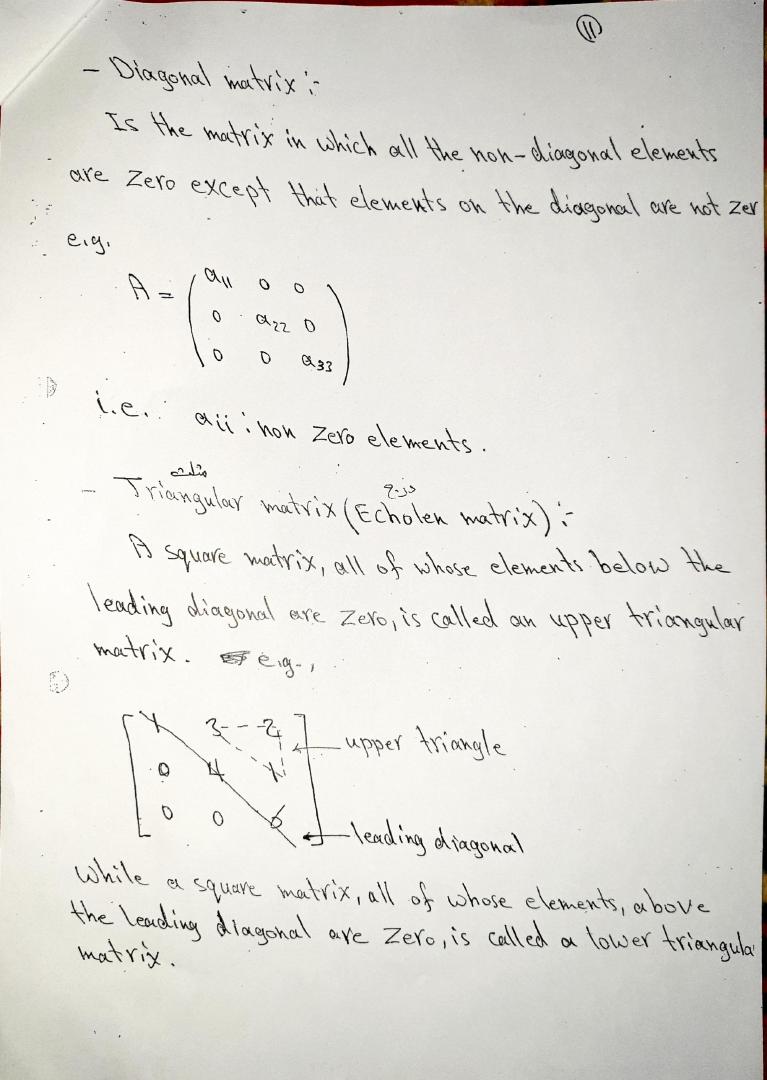 11
- Diagonal matrix :-
Is the matrix in which all the non-diagonal elements
are Zero except that elements on the diagonal are not Zer
e.g.
A = ( a11 0 0
0 a22 0
0 0 a33 )
i.e. aii : non Zero elements.
مثلث
- Triangular matrix (Echolen matrix) :-
A square matrix, all of whose elements below the
leading diagonal are Zero, is called an upper triangular
matrix. e.g.,
[ 1 3 2 ] upper triangle
0 4 1
0 0 6 leading diagonal
While a square matrix, all of whose elements, above
the leading diagonal are Zero, is called a lower triangula
matrix.